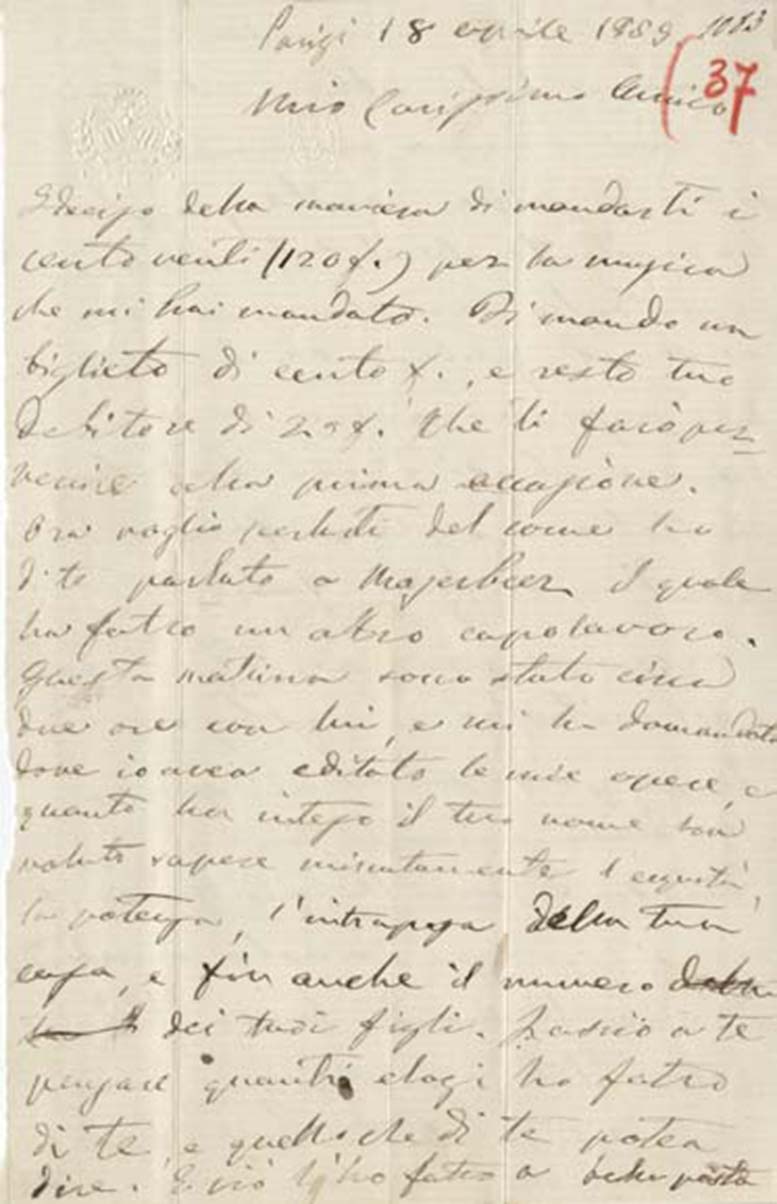 Parigi 18 aprile 1859 1083
(37
Mio Carissimo Amico
della maniera di mandarti i
cento venti (120 f.) per la musica
che mi hai mandato. Ti mando un
biglieto di cento f., e resto tuo
debitore di 20 f. che ti farò per=
venire alla prima occasione.
Ora voglio parlarti del come ho
di te parlato a Majerbeer il quale
ha fatto un altro capolavoro.
Questa mattina sono stato circa
due ore con lui, e mi ha domandato
dove io avea editato le mie opere, e
quanto ha inteso il tuo nome ha
voluto sapere minutamente
la potenza, l'intrapresa della tua
casa, e fin anche il numero
dei tuoi figli. Lascio a te
pensare quanti elogi ho fatto
di te, e quello che di te potea
dire. E ciò l'ho fatto a bella posta